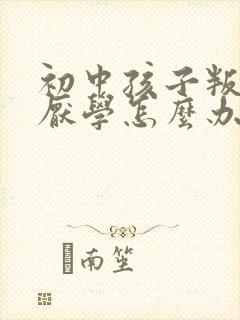 初中孩子叛
厭學怎麼办
南笙